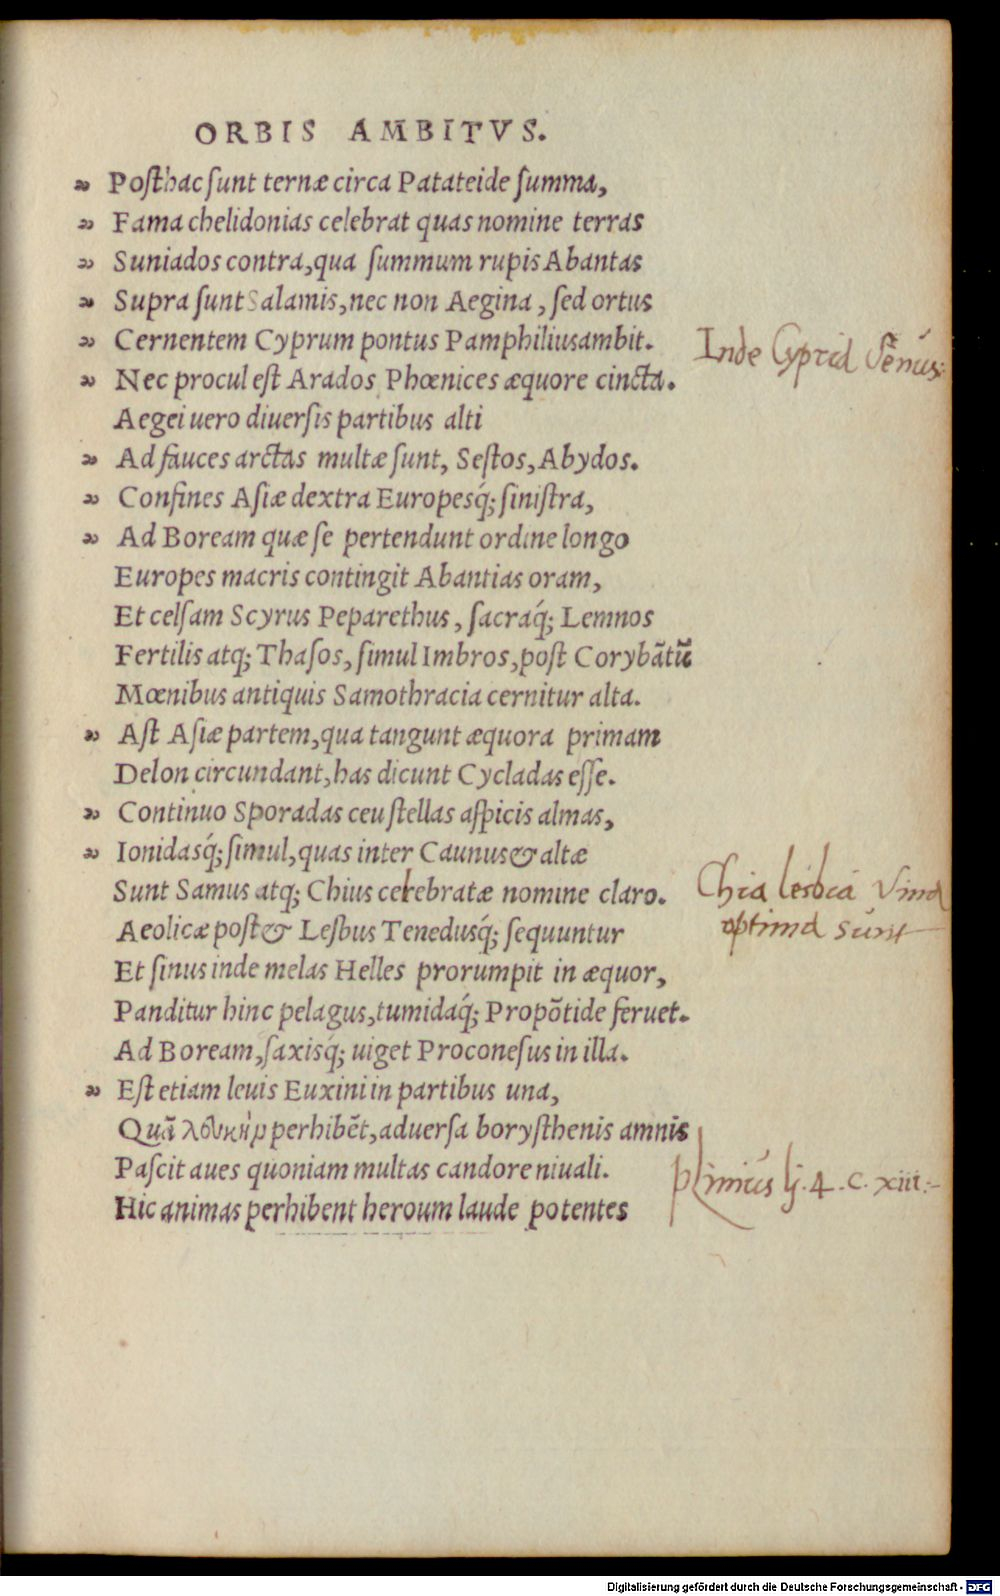 ORBIS AMBITVS.
„ Posthac sunt ternæ circa Patateide summa,
„ Fama chelidonias celebrat quas nomine terras
„ Suniados contra, qua summum rupis Abantas
„ Supra sunt Salamis, nec non Aegina, sed ortus
„ Cernentem Cyprum pontus Pamphilius ambit.
Inde Cypria Venus:
„ Nec procul est Arados Phœnices æquore cincta.
Aegei uero diuersis partibus alti
„ Ad fauces arctas multæ sunt, Sestos, Abydos.
„ Confines Asiæ dextra Europesq́; sinistra,
„ Ad Boream quæ se pertendunt ordine longo
Europes macris contingit Abantias oram,
Et celsam Scyrus Peparethus, sacraq́; Lemnos
Fertilis atq; Thasos, simul Imbros, post Corybãtũ
Mœnibus antiquis Samothracia cernitur alta.
„ Ast Asiæ partem, qua tangunt æquora primam
Delon circundant, has dicunt Cycladas esse.
„ Continuo Sporadas ceu stellas aspicis almas,
„ Ionidasq́; simul, quas inter Caunus & altæ
Sunt Samus atq; Chius celebratæ nomine claro.
Chia lesbia vina
optima sunt
Aeolicæ post & Lesbus Tenedusq́; sequuntur
Et sinus inde melas Helles prorumpit in æquor,
Panditur hinc pelagus, tumidaq́; Propõtide feruet.
Ad Boream, saxisq́; uiget Proconesus in illa.
„ Est etiam leuis Euxini in partibus una,
Quã λδυκὴρ perhibẽt, aduersa borysthenis amnis
Pascit aues quoniam multas candore niuali.
plinius lj. 4. c. xiii:-
Hic animas perhibent heroum laude potentes
Digitalisierung gefördert durch die Deutsche Forschungsgemeinschaft - DFG